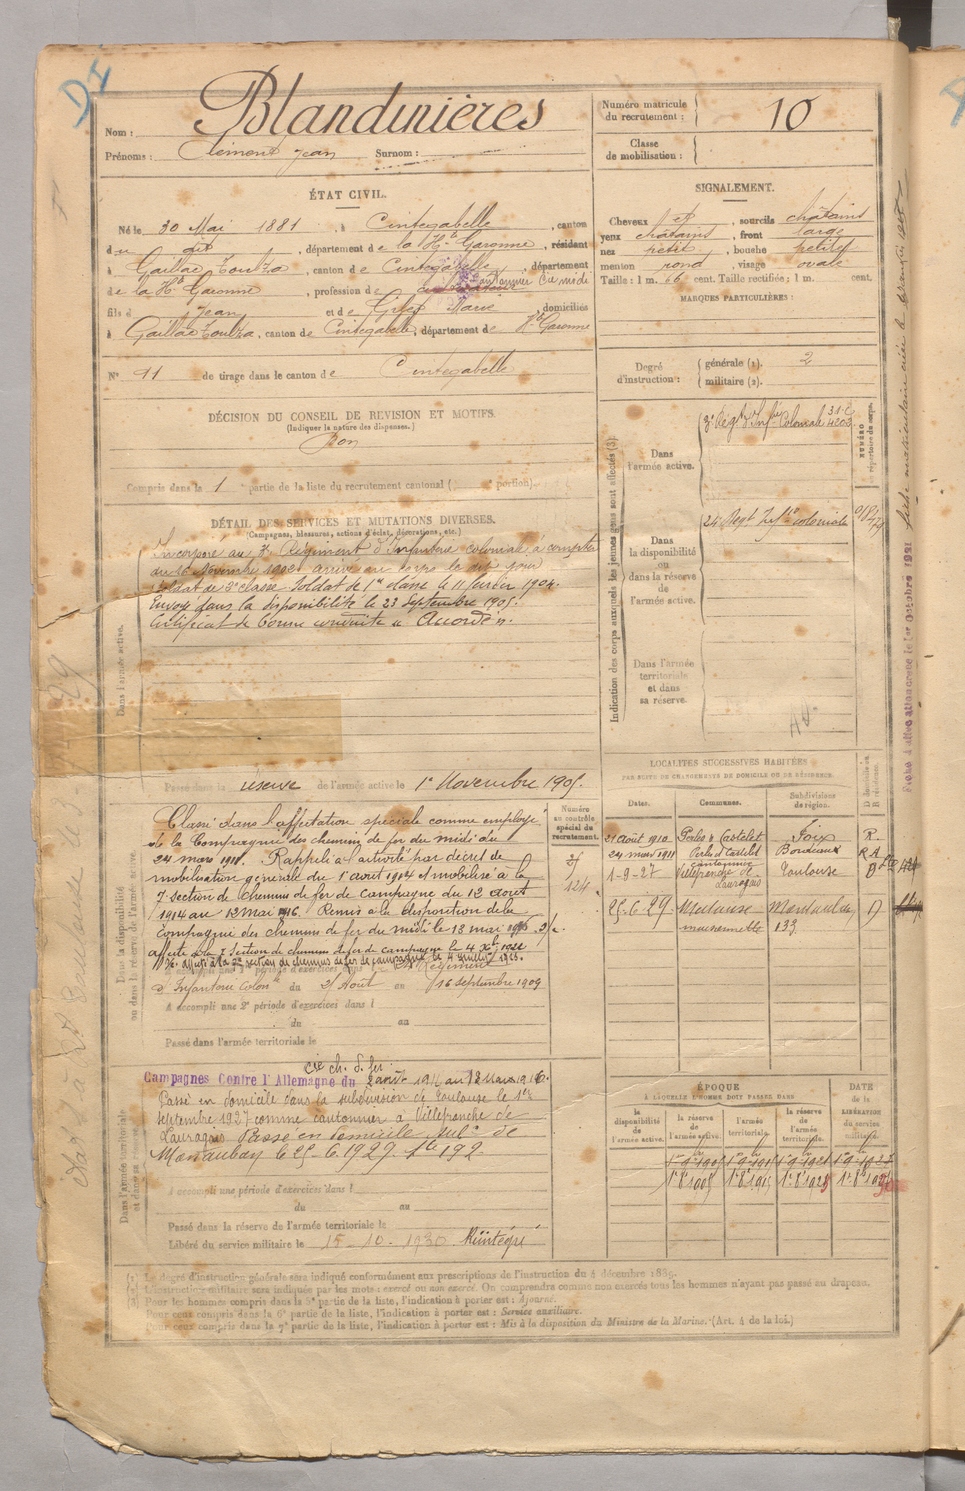 DI
Nom : Blandinières
Prénoms : Clément Jean Surnom :
Numéro matricule du recrutement : 10
Classe de mobilisation :
ÉTAT CIVIL.
Né le 30 Mai 1881, à Cintegabelle, canton
du dit, département de la Hte Garonne, résidant
à Gaillac Toulza, canton de Cintegabelle, département
de la Hte Garonne, profession de cantonnier Cie midi
fils d Jean et de Marie domiciliés
à Gaillac Toulza, canton de Cintegabelle, département de Hte Garonne
N° 11 de tirage dans le canton de Cintegabelle
SIGNALEMENT.
Cheveux et, sourcils châtains
yeux châtains, front large
nez petit, bouche petite
menton rond, visage ovale
Taille : 1 m. 66 cent. Taille rectifiée : 1 m. cent.
MARQUES PARTICULIÈRES :
Degré d'instruction :
générale (1). 2
militaire (2).
DÉCISION DU CONSEIL DE REVISION ET MOTIFS.
(Indiquer la nature des dispenses.)
Bon
Compris dans la 1 partie de la liste du recrutement cantonal ( portion).
DÉTAIL DES SERVICES ET MUTATIONS DIVERSES.
(Campagnes, blessures, actions d'éclat, décorations, etc.)
Dans l'armée active.
Incorporé au 3e Régiment d'Infanterie coloniale à compter
du 16 Novembre 1902 arrivé au corps le dit jour
soldat de 2e classe. Soldat de 1re classe le 11 février 1904.
Envoyé dans la disponibilité le 23 Septembre 1905.
Certificat de bonne conduite "Accordé".
Passé dans la réserve de l'armée active le 1er Novembre 1905.
Indication des corps auxquels les jeunes gens sont affectés (3)
NUMÉRO
répertoire du corps.
Dans l'armée active.
3e Régt d'Infie Coloniale
Dans la disponibilité ou dans la réserve de l'armée active.
24 Régt Infie coloniale
Dans l'armée territoriale et dans sa réserve.
Dans la disponibilité
ou dans la réserve de l'armée active
Classé dans l'affectation spéciale comme employé
de la Compagnie des chemins de fer du midi du
24 mars 1911. Rappelé à l'activité par décret de
mobilisation générale du 1er août 1914 et mobilisé à la
7 section de chemins de fer de campagne du 12 août
1914 au 12 mai 1916. Remis à la disposition de la
Compagnie des chemins de fer du midi le 18 mai
affecté à la 7 Section de chemins de fer de campagne le 4
section de chemins de fer de campagne le 4
A accompli une 1re période d'exercices dans le 24 Régiment
d'Infanterie Colonle du 21 Août au 16 septembre 1909
A accompli une 2e période d'exercices dans l
du au
Passé dans l'armée territoriale le
Numéro au contrôle spécial du recrutement.
124
LOCALITÉS SUCCESSIVES HABITÉES
PAR SUITE DE CHANGEMENTS DE DOMICILE OU DE RÉSIDENCE.
Dates. Communes. Subdivisions de région. D domicile ou R résidence.
21 août 1910 Perles & Castelet Foix R.
24 mars 1911 Perles & Castelet Bordeaux R A
1-9-27 cantonnier Villefranche de Lauragais Toulouse D
25.6.29. Montauban D
133
Dans l'armée territoriale
et dans sa réserve
Cie ch. d. fer
Campagnes Contre l'Allemagne du 2 août 1914 au 18 Mars 1916.
Passé en domicile dans la subdivision de Toulouse le 1er
septembre 1927 comme cantonnier à Villefranche de
Lauragais Passé en domicile subon de
Montauban le 25.6.1929. No 192.
A accompli une période d'exercices dans l
du au
Passé dans la réserve de l'armée territoriale le
Libéré du service militaire le 15-10-1930 Réintégré
ÉPOQUE
À LAQUELLE L'HOMME DOIT PASSER DANS
la disponibilité de l'armée active. la réserve de l'armée active. l'armée territoriale. la réserve de l'armée territoriale. DATE de la LIBÉRATION du service militaire.
(1) Le degré d'instruction générale sera indiqué conformément aux prescriptions de l'instruction du 4 décembre 1889.
(2) L'instruction militaire sera indiquée par les mots : exercé ou non exercé. On comprendra comme non exercés tous les hommes n'ayant pas passé au drapeau.
(3) Pour les hommes compris dans la 5e partie de la liste, l'indication à porter est : Ajourné.
Pour ceux compris dans la 6e partie de la liste, l'indication à porter est : Service auxiliaire.
Pour ceux compris dans la 7e partie de la liste, l'indication à porter est : Mis à la disposition du Ministre de la Marine. (Art. 4 de la loi.)